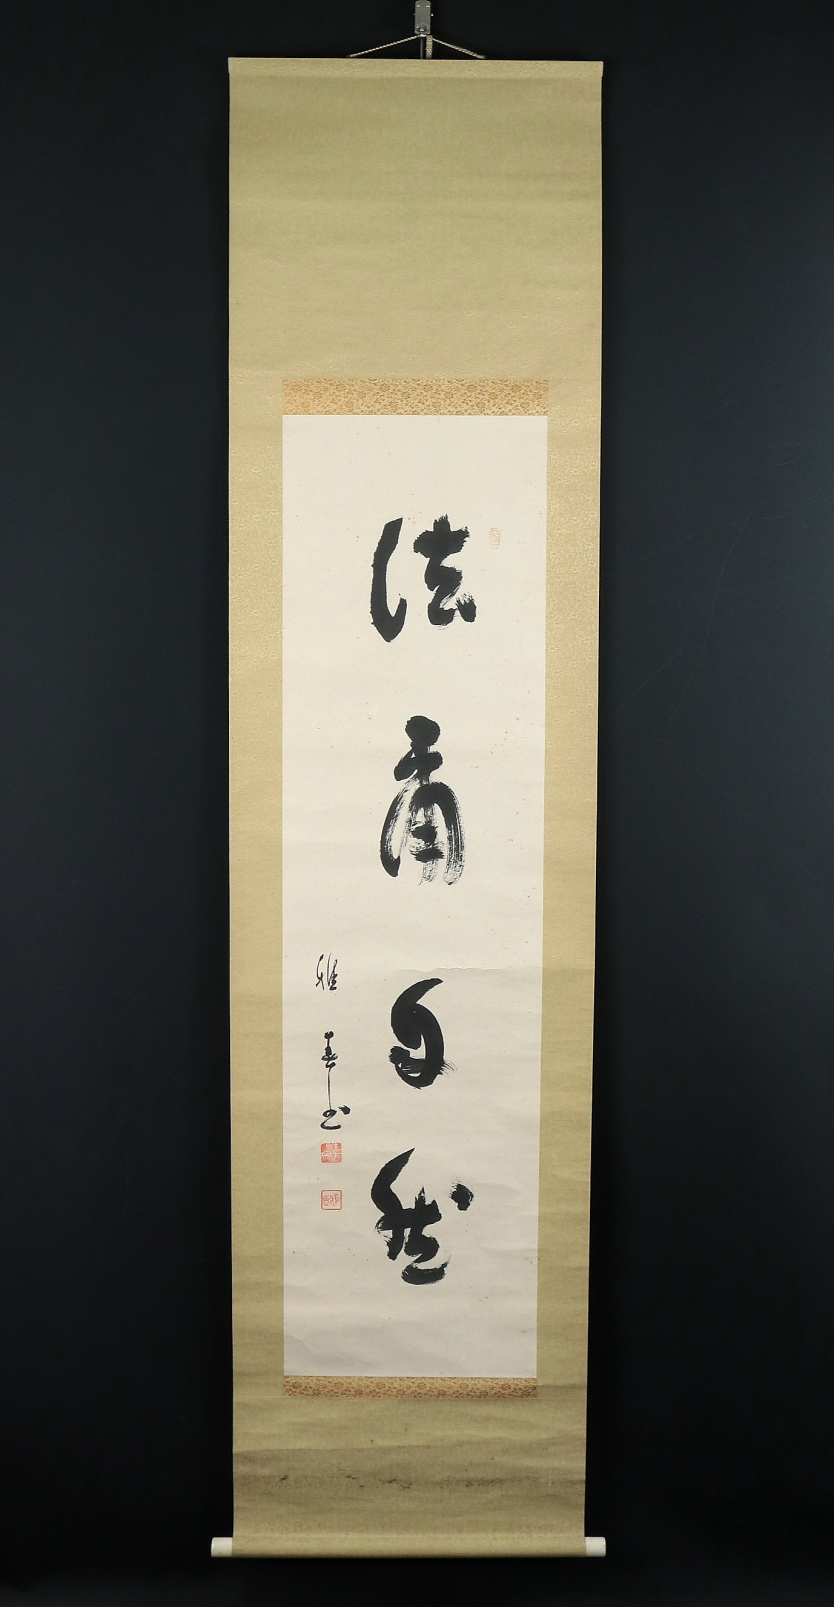 法爾自然
雅春書